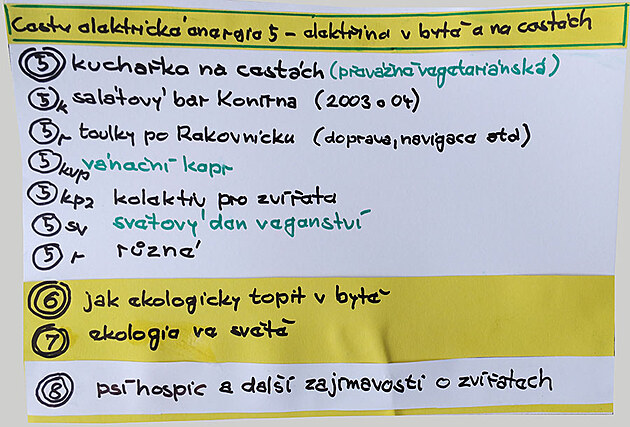 Cesty elektrická energie 5 – elektřina v bytě a na cestách
5 kuchařka na cestách (převážně vegetariánská)
5 k salátový bar Konírna (2003 a 04)
5 r toulky po Rakovnicku (doprava, navigace atd)
5 kvp vánoční kapr
5 kpz kolektiv pro zvířata
5 sv světový den veganství
5 r různé
6 jak ekologicky topit v bytě
7 ekologie ve světě
8 psí hospic a další zajímavosti o zvířatech